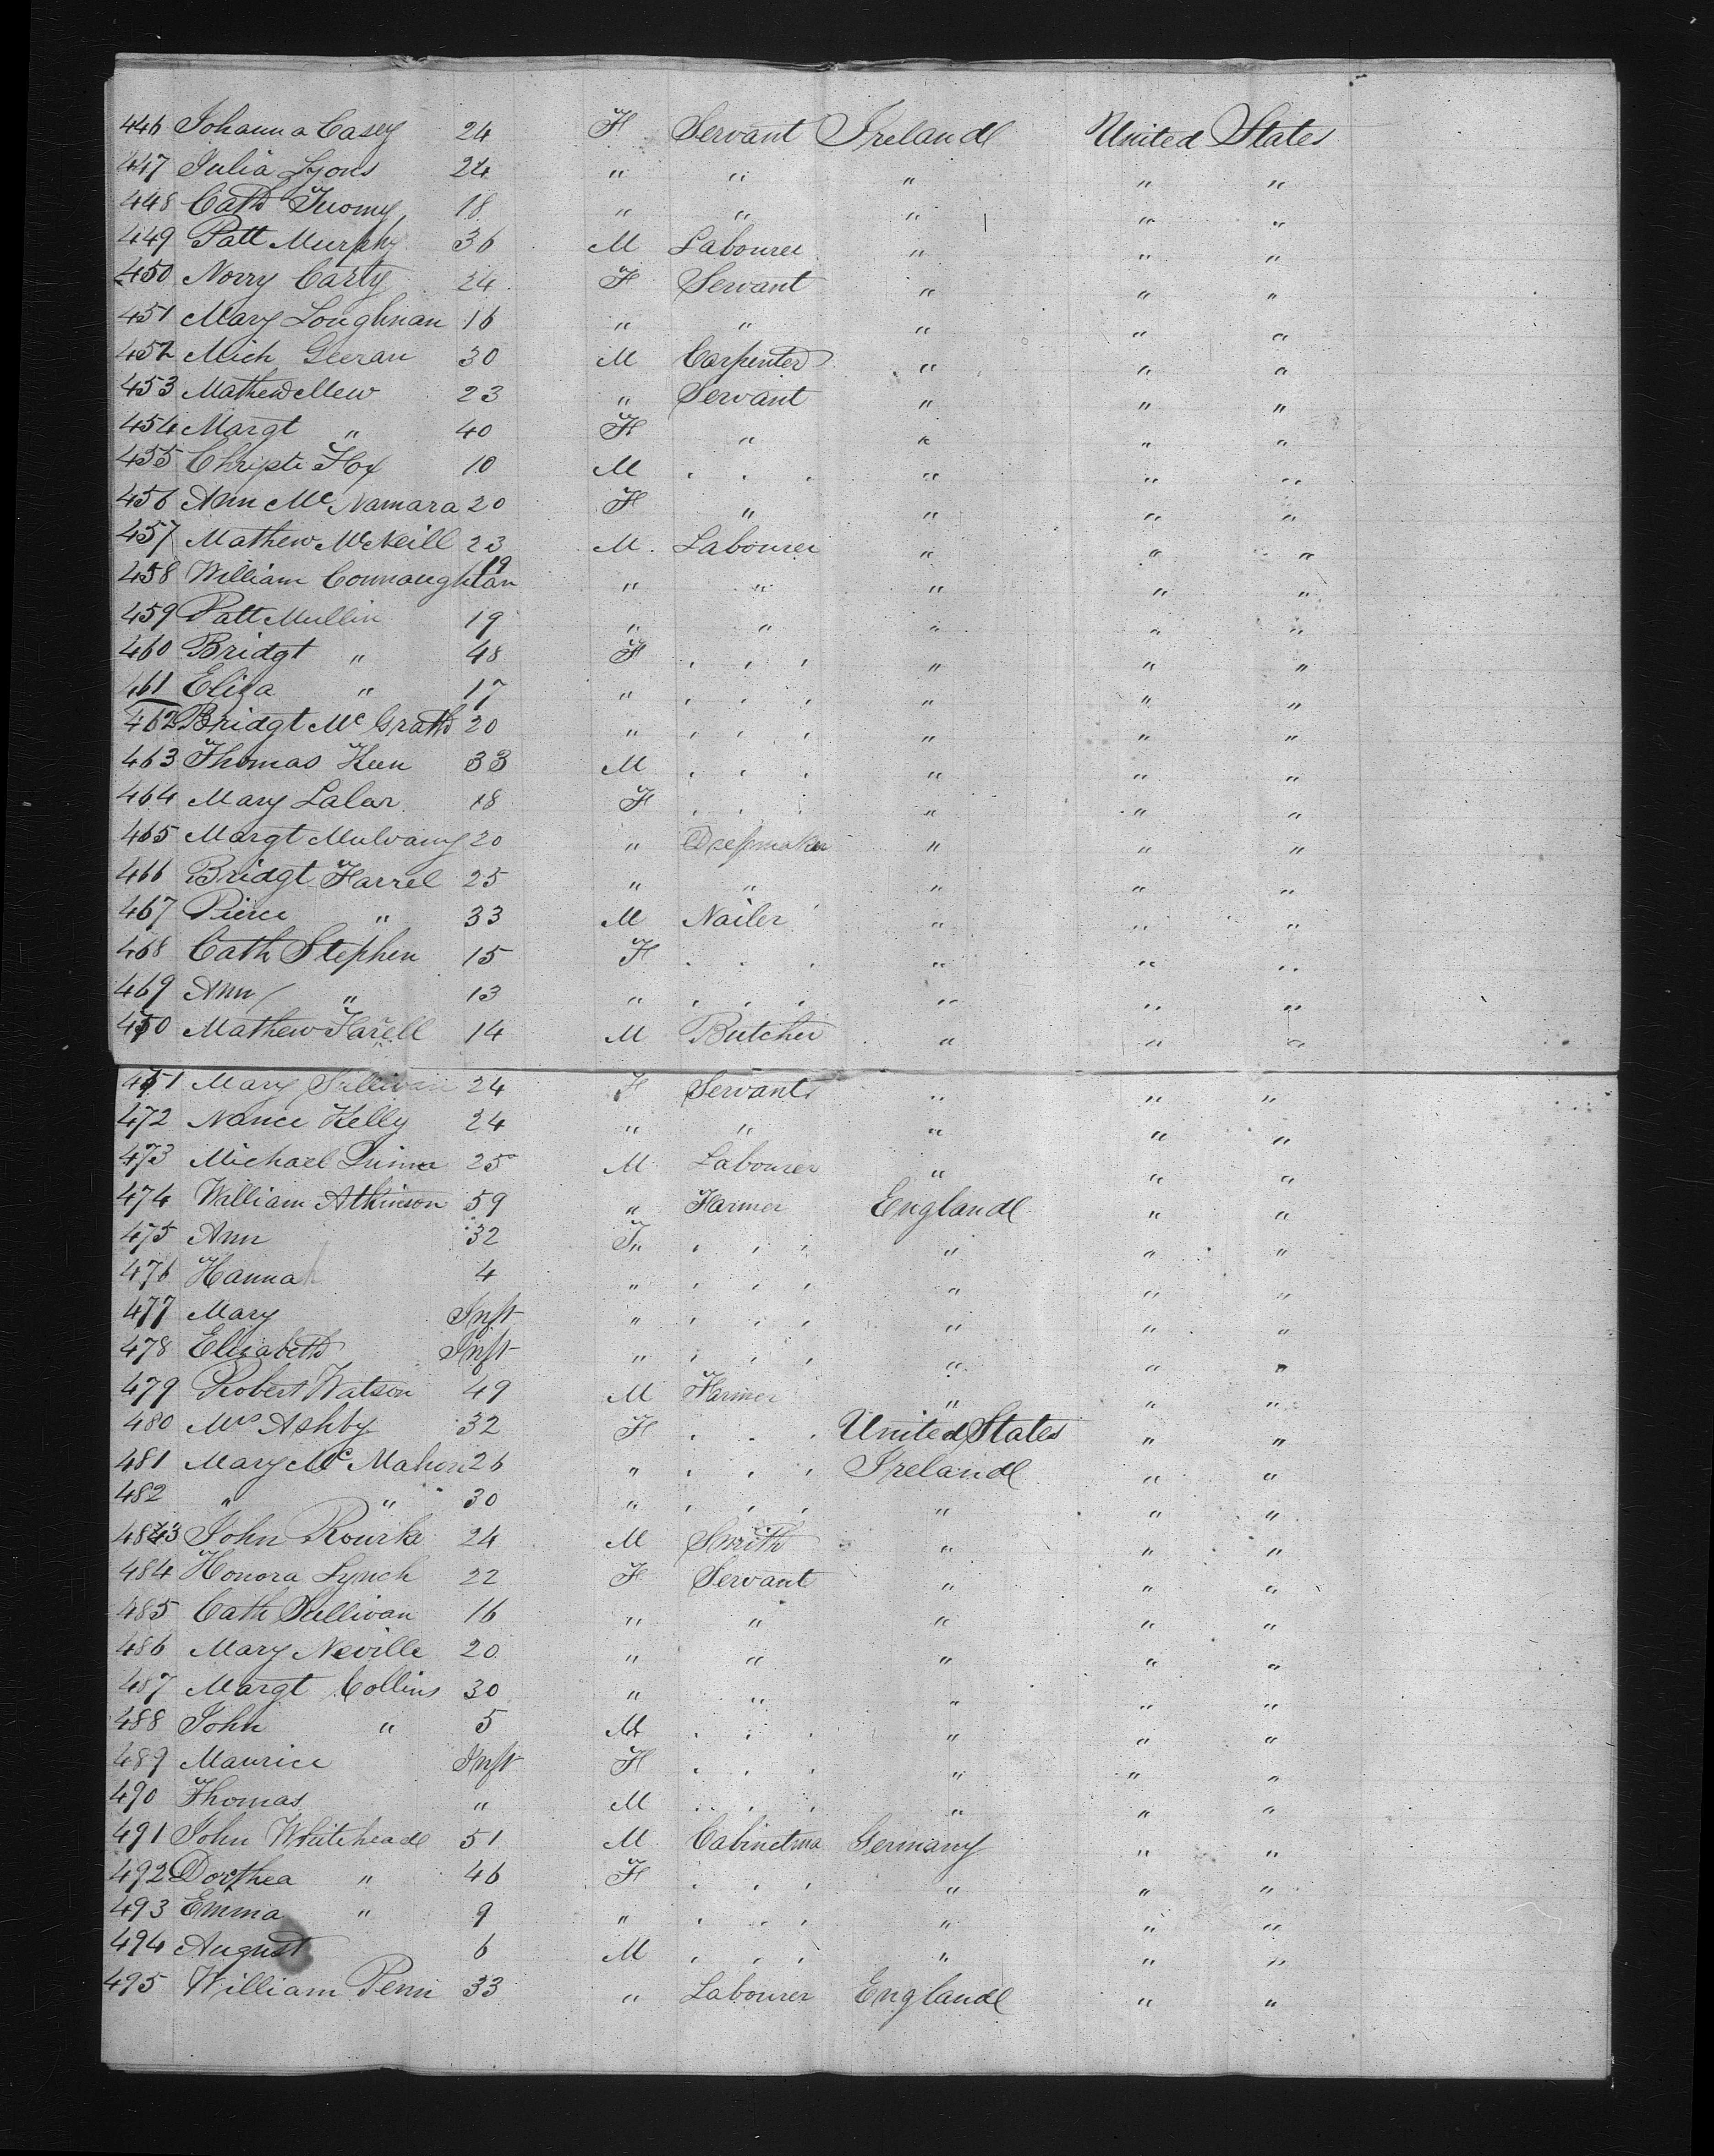 446 Johanna Casey 24 F Servant Ireland United States
447 Julia Lyons 24 " " " " "
448 Cath Tuomy 18 " " " " "
449 Patt Murphy 36 M Labourer " " "
450 Norry Carty 24 F Servant " " "
451 Mary Loughnan 16 " " " " "
452 Mich Geeran 30 M Carpenter " " "
453 Mathew Mew 23 " Servant " " "
454 Margt " 40 F " " " "
455 Christe Fox 10 M , , , " " "
456 Ann McNamara 20 F " " " "
457 Mathew McNeill 23 M Labourer " " "
458 William Connaughtan 19 " " " " "
459 Patt Mullin 19 " " " " "
460 Bridgt " 48 F , , , " " "
461 Eliza " 17 " , , , " " "
462 Bridgt McGrath 20 " , , , " " "
463 Thomas Keen 33 M , , , " " "
464 Mary Lalor 18 F , , , " " "
465 Margt Mulvany 20 " Dressmaker " " "
466 Bridgt Farrel 25 " " " " "
467 Pierce " 33 M Nailer " " "
468 Cath Stephen 15 F , , , " " "
469 Ann " 13 " , , , " " "
470 Mathew Farell 14 M Butcher " " "
471 Mary Sullivan 24 F Servant " " "
472 Nance Kelly 24 " " " " "
473 Michael 25 M Labourer " " "
474 William Atkinson 59 " Farmer England " "
475 Ann 32 F" , , , " " "
476 Hannah 4 " , , , " " "
477 Mary Inft " , , , " " "
478 Elizabeth Inft " , , , " " "
479 Robert Watson 49 M Farmer " " "
480 Mrs Ashby 32 F , , , United States " "
481 Mary McMahon 26 " , , , Ireland " "
482 " " 30 " , , , " " "
483 John Rourke 24 M Smith " " "
484 Honora Lynch 22 F Servant " " "
485 Cath Sullivan 16 " " " " "
486 Mary Neville 20 " " " " "
487 Margt Collins 30 " " " " "
488 John " 5 M , , , " " "
489 Maurice Inft F , , , " " "
490 Thomas " M , , , " " "
491 John Whitehead 51 M Cabinetma Germany " "
492 Dorthea " 46 F , , , " " "
493 Emma " 9 " , , , " " "
494 August 6 M , , , " " "
495 William Penn 33 " Labourer England " "